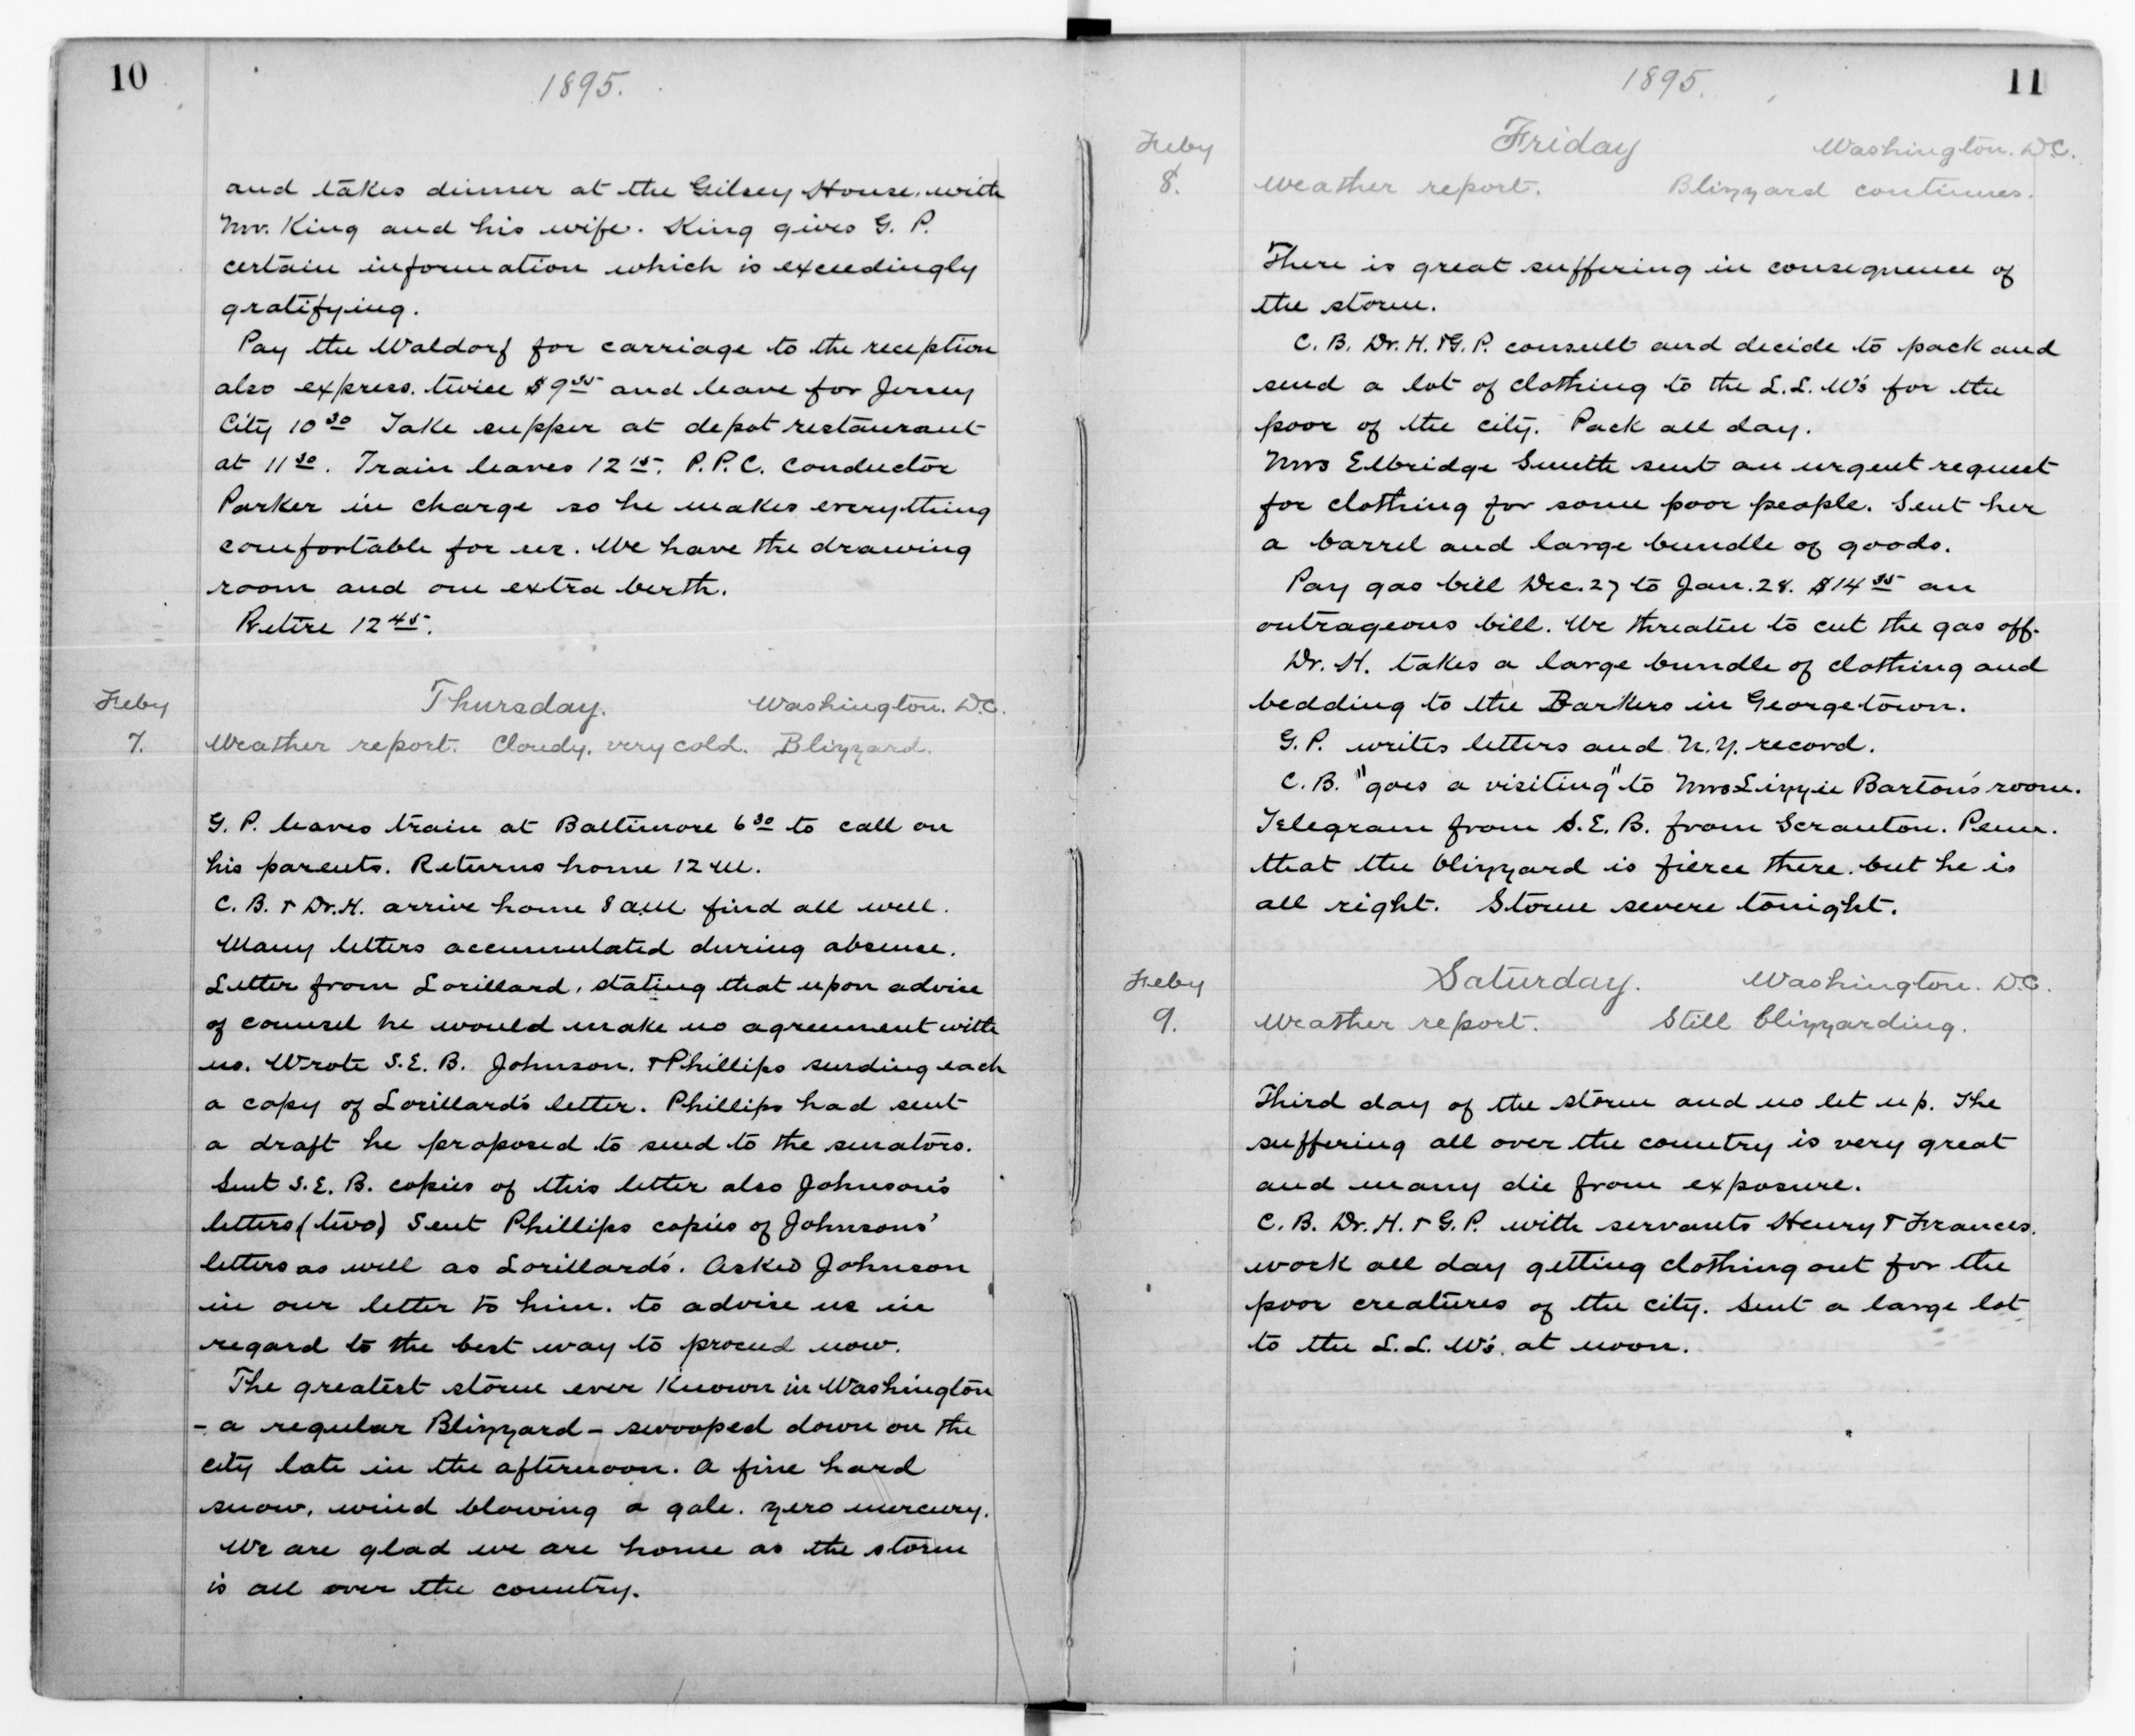 10
1895.
and takes dinner at the Gilsey House. with
Mr. King and his wife. King gives G. P.
certain information which is exceedingly
gratifying.
Pay the Waldorf for carriage to the reception
also express. twice $9 35 and leave for Jersey
City 10 30 Take supper at depot restaurant
at 11 30. Train leaves 12 15. P.P.C. Conductor
Parker in charge so he makes everything
comfortable for us. We have the drawing
room and one extra berth.
Retire 12 45.
Feby Thursday. Washington. D.C.
7. Weather report. Cloudy, very cold. Blizzard.
G. P. leaves train at Baltimore 6 30 to call on
his parents. Returns home 12 M.
C. B. & Dr. H. arrive home 8 a.m. find all well.
Many letters accumulated during absence.
Letter from Lorillard, stating that upon advise
of counsel he would make no agreement with
us. Wrote S. E. B. Johnson. & Phillips sending each
a copy of Lorillard's letter. Phillips had sent
a draft he proposed to send to the senators.
Sent S. E. B. copies of this letter also Johnson's
letters (two) Sent Phillips copies of Johnsons'
letters as well as Lorillard's. Asked Johnson
in our letter to him. to advise us in
regard to the best way to proceed now.
The greatest storm ever known in Washington
- a regular Blizzard - swooped down on the
city late in the afternoon. A fine hard
snow, wind blowing a gale. zero mercury.
We are glad we are home as the storm
is all over the country.
11
1895.
Feby Friday Washington. D.C.
8. Weather report. Blizzard continues.
There is great suffering in consequence of
the storm.
C. B. Dr. H. & G. P. consult and decide to pack and
send a lot of clothing to the L. L. W's for the
poor of the city. Pack all day.
Mrs Elbridge Smith sent an urgent request
for clothing for some poor people. Sent her
a barrel and large bundle of goods.
Pay gas bill Dec. 27 to Jan. 28. $14 35 an
outrageous bill. We threaten to cut the gas off.
Dr. H. takes a large bundle of clothing and
bedding to the Barkers in Georgetown.
G. P. writes letters and N.Y. record.
C. B. "goes a visiting" to Mrs Lizzie Barton's room.
Telegram from S. E. B. from Scranton. Penn.
that the blizzard is fierce there. but he is
all right. Storm severe tonight.
Feby Saturday. Washington. D.C.
9. Weather report. Still blizzarding.
Third day of the storm and no let up. The
suffering all over the country is very great
and many die from exposure.
C. B. Dr. H. & G. P. with servants Henry & Frances.
work all day getting clothing out for the
poor creatures of the city. Sent a large lot
to the L. L. W's. at noon.